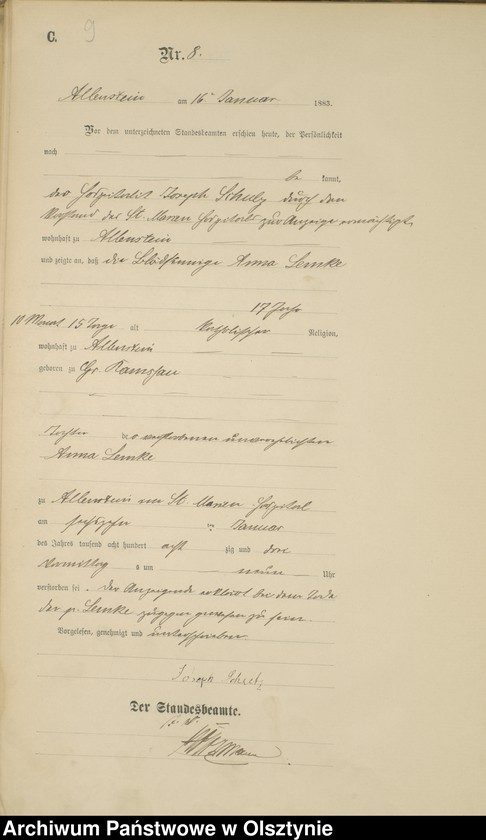 C. 9
Nr. 8.
Allenstein am 16 Januar 1883.
Vor dem unterzeichneten Standesbeamten erschien heute, der Persönlichkeit
nach
be kannt,
der Hospitalit Joseph Schulz durch den
Vorstand des St. Marien Hospitals zur Anzeige ermächtigt,
wohnhaft zu Allenstein
und zeigte an, daß die Blödsinnige Anna Lemke
17 Jahr
10 Monat 15 Tage alt katholischer Religion,
wohnhaft zu Allenstein
geboren zu Gr.
Tochter der verstorbenen unverehelichten
Anna Lemke
zu Allenstein im St. Marien Hospital
am sechszehn ten Januar
des Jahres tausend acht hundert acht zig und drei
Vormittag s um neun Uhr
verstorben sei. Der Anzeigende erklärt bei dem Tode
der p. Lemke zugegen gewesen zu sein.
Vorgelesen, genehmigt und unterschrieben
Joseph Schulz
Der Standesbeamte.
Archiwum Państwowe w Olsztynie